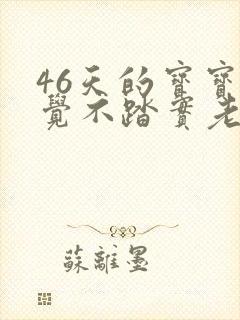 46天的寶寶
覺不踏實老
蘇離墨